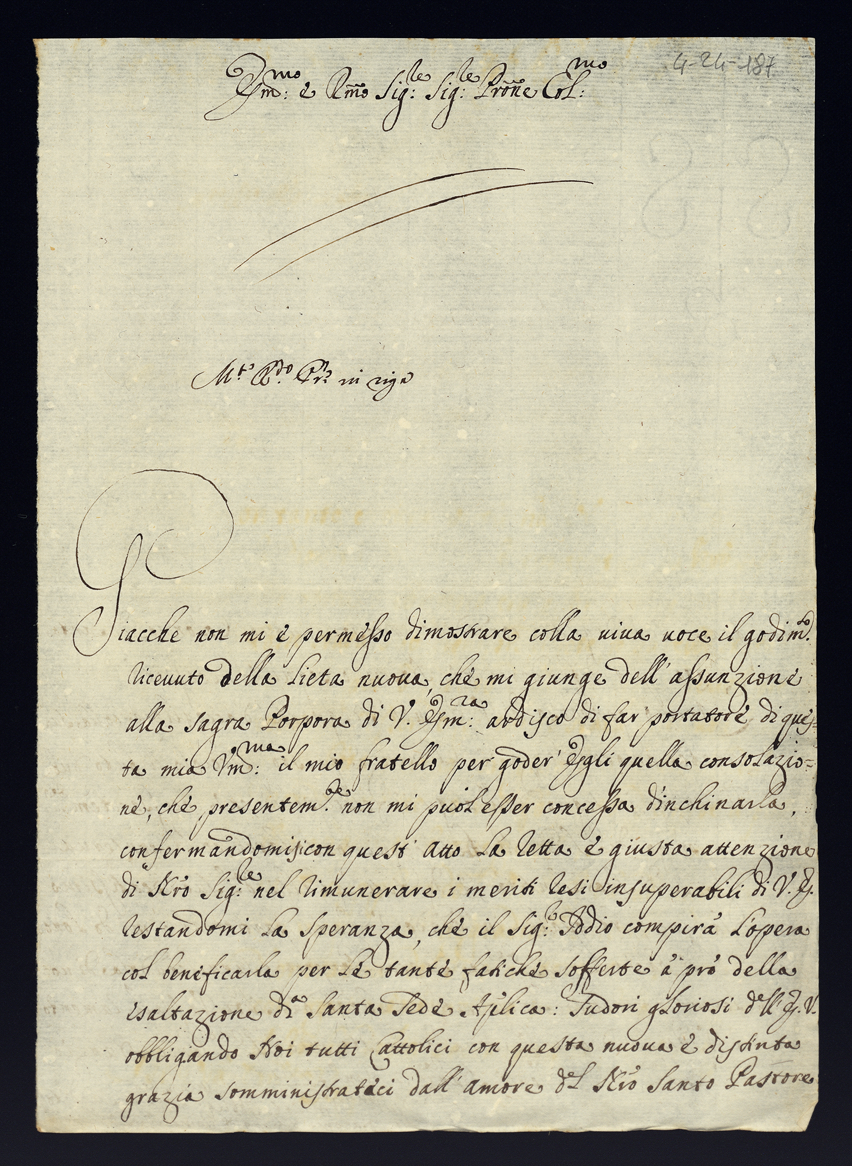 4-24-187
Em:mo è Rmo Sig:le Sig:le Prone Col:mo
Giacche non mi è permesso dimostrare colla viva voce il godim.to
ricevuto della lieta nuova, che mi giunge dell' assunzione
alla sagra Porpora di V. Em:za ardisco di far portatore di ques-
ta mia Um:ma il mio fratello per goder Egli quella consolazio=
ne, che presentem.te non mi può esser concessa d'inchinarla,
confermandomisi con quest' atto la retta è giusta attenzione
di Nr̃o Sig:re nel rimunerare i meriti resi insuperabili di V. E.
restandomi la speranza, che il Sig:re Iddio compirà l'opera
col beneficarla per le tante fatiche sofferte à prò della
esaltazione d.a Santa Sede Aplica: Sudori gloriosi dell' E. V.
obbligando Noi tutti Cattolici con questa nuova è distinta
grazia somministrataci dall' amore del Nr̃o Santo Pastore